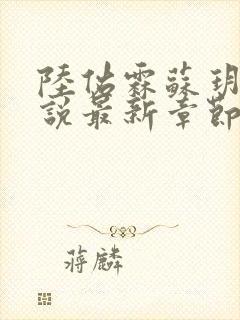 陸佔霖蘇玥
說最新章節
蔣麟